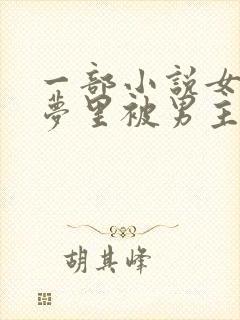 一部小说女
夢里被男主
胡其峰